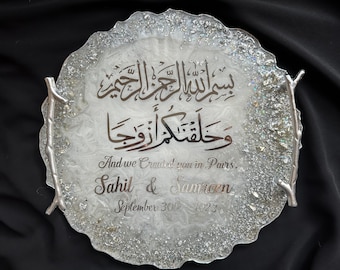 بسم الله الرحمن الرحيم
وخلقنكم أزوجا
And we Created you in Pairs
Sahil &
September 30